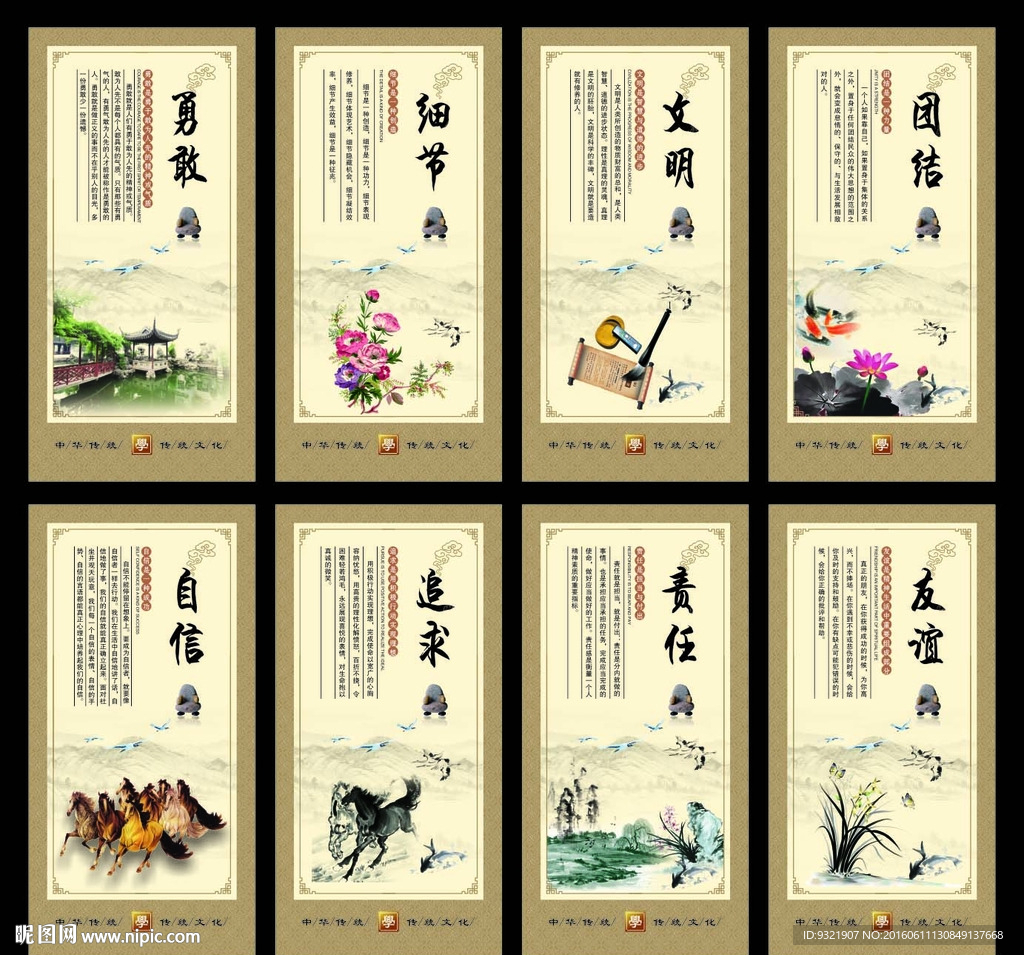 勇敢
勇敢就是人们有勇于敢为人先的精神或气质。
敢为人先不是每个人都具有的气质。只有那些有勇
气的人，有勇气敢为人先的人才能被称作是勇敢的
人。勇敢就是做正义的事而不在乎别人的目光。多
一份勇敢少一份遗憾。
中/华/传/统/
學
传/统/文/化/
细节
细节是一种创造
THE DETAIL IS A KIND OF CREATION
细节是一种创造，细节是一种功力，细节表现
修养，细节体现艺术，细节隐藏机会，细节凝结效
率，细节产生效益，细节是一种征兆。
中/华/传/统/
學
传/统/文/化/
文明
文明是人类所创造的物质财富的总和，是人类
智慧、道德的进步状态。理性是真理的灵魂，真理
是文明的胚胎，文明是科学的丰碑，文明就是要造
就有修养的人。
中/华/传/统/
學
传/统/文/化/
团结
团结是一种力量
UNITY IS A STRENGTH
一个人如果靠自己，如果置身于集体的关系
之外，置身于任何团结民众的伟大思想的范围之
外，就会变成怠惰的、保守的、与生活发展相敌
对的人。
中/华/传/统/
學
传/统/文/化/
自信
自信是一种成功
SELF CONFIDENCE IS A KIND OF SUCCESS
自信不能停留在想象上。要成为自信者，就要像
自信者一样去行动。我们在生活中自信地讲了话，自
信地做了事，我们的自信就能真正确立起来。面对社
会环境，我们每一个自信的表情、自信的手
势、自信的言语都能真正在心理中培养起我们的自信。
中/华/传/统/
學
传/统/文/化/
追求
PURSUE IS TO USE POSITIVE ACTION TO REALIZE THE IDEAL
用积极行动实现理想，完成使命以宽广的心胸
容纳忧愁，用高贵的理性化解愤怒，百折不挠，令
困难轻若鸿毛，永远展现喜悦的表情，对生命抱以
真诚的微笑。
中/华/传/统/
學
传/统/文/化/
责任
责任就是担当，就是付出；责任是分内就做的
事情。也是承担应当承担的任务，完成应当完成的
使命，做好应当做好的工作。责任感是衡量一个人
精神素质的重要指标。
中/华/传/统/
學
传/统/文/化/
友谊
FRIENDSHIP IS AN IMPORTANT PART OF SPIRITUAL LIFE
真正的朋友，在你获得成功的时候，为你高
兴，而不捧场。在你遇到不幸或悲伤的时候，会给
你及时的支持和鼓励。在你有缺点可能犯错误的时
候，会给你正确的批评和帮助。
中/华/传/统/
學
传/统/文/化/
昵图网 www.nipic.com
ID:9321907 NO:20160611130849137668